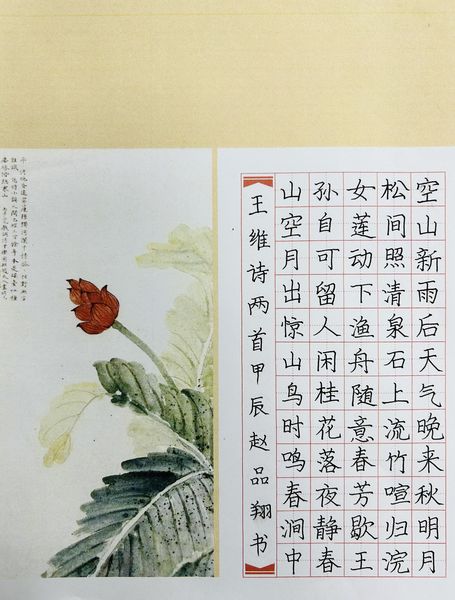 空山新雨后天气晚来秋明月
松间照清泉石上流竹喧归浣
女莲动下渔舟随意春芳歇王
孙自可留人闲桂花落夜静春
山空月出惊山鸟时鸣春涧中
王维诗两首甲辰赵品翔书